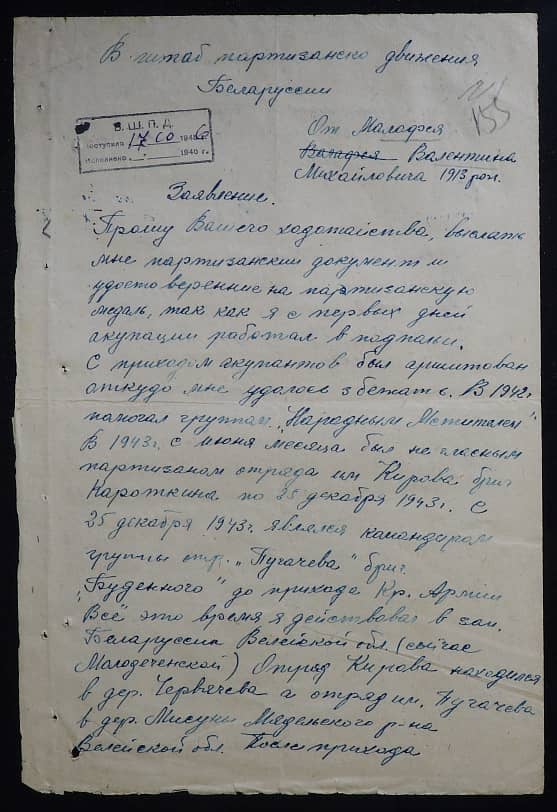 В штаб партизанско движения
Беларуссии
155
Б. Ш. П. Д.
Поступило 17 1946
Исполнено 1946 г.
От Малафея
Валафея Валентина
Михайловича 1913 рож.
Заявление.
Прошу Вашего ходотайства, выслать
мне партизанский документ и
удостоверение на партизанскую
медаль, так как я с первых дней
акупации работал в подпаки.
С приходом акупантов был ариштован
откудо мне удалось збежать. В 1942г
помогал группам „Народным Мстителем"
В 1943г. с июня месяца был не гласным
партизаном отряда им Кирова бриг
Кароткина по 25 декабря 1943г. С
25 декабря 1943г. являлся командиром
группы отр. „Пугачева" бриг.
„Буденного" до прихода Кр. Армии
Всё это время я действовал в зап.
Беларуссии Велейской обл. (сейчас
Молодеченской) Отряд Кирова находился
в дер. Червячева а отряд им. Пугачева
в дер. Мисуни Мядельского р-на
Велейской обл. После прихода